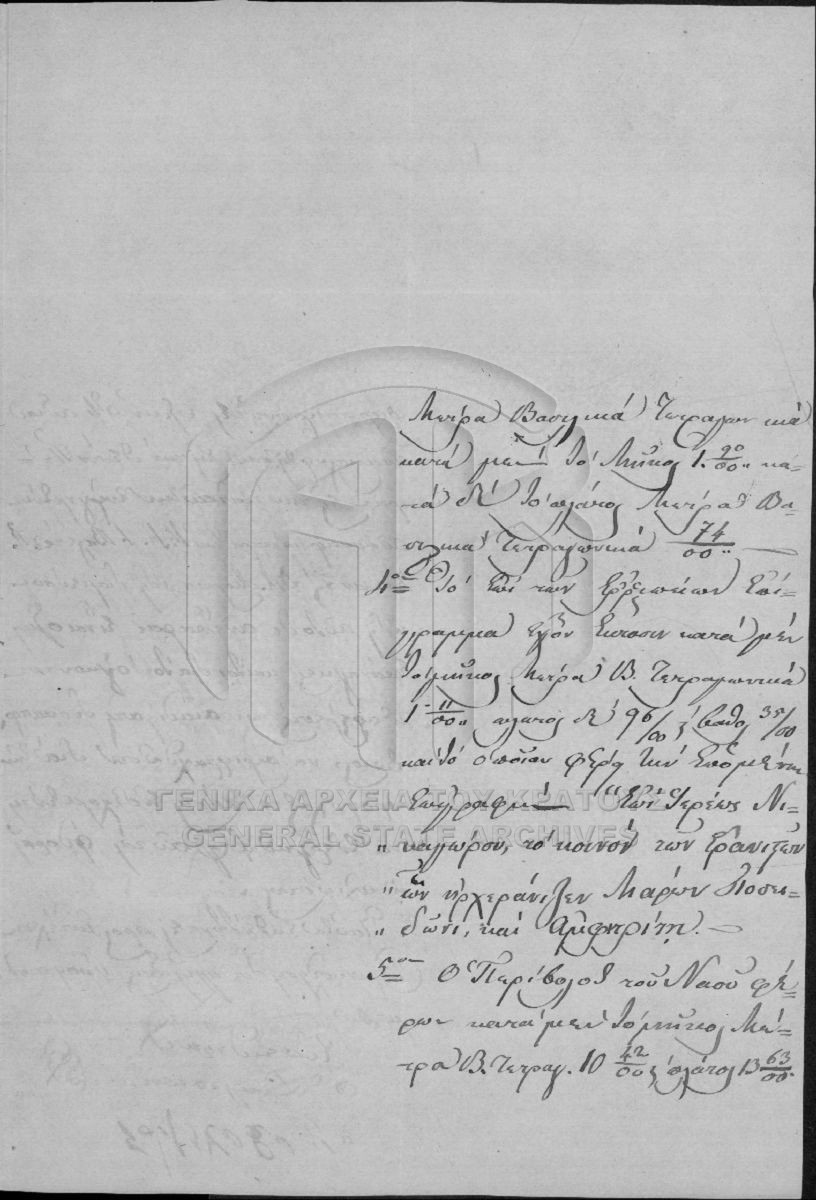 Μέτρα Βασιλικά Τετραγωνικά
κατά μεν το Μήκος 1. 90/00 " κα-
τά δέ το πλάτος Μέτρα Βα-
σιλικά Τετραγωνικά 74/00 "
4ον Το επί των Ερειπείων επί-
γραμμα έχον έκτασιν κατά μέν
το μήκος Μέτρα Β. Τετραγωνικά
1 - 11/00 " πλάτος δέ 96/00 βαθος 35/00
και το οποίον φέρει την επομένην
επιγραφήν "Επί Ιερέως Νι-
" καγόρου, το κοινόν των Ερανιστών
" ών ηρχεράνιζεν Μάρων Ποσει-
" δώνι, και Αμφιτρίτη. —
5ον Ο Περίβολος του Ναού φέ-
ρων κατά μεν το μήκος Μέ-
τρα Β. Τετραγ. 10 42/00 πλάτος 13 63/00 "
ΓΕΝΙΚΑ ΑΡΧΕΙΑ ΤΟΥ ΚΡΑΤΟΥΣ
GENERAL STATE ARCHIVES